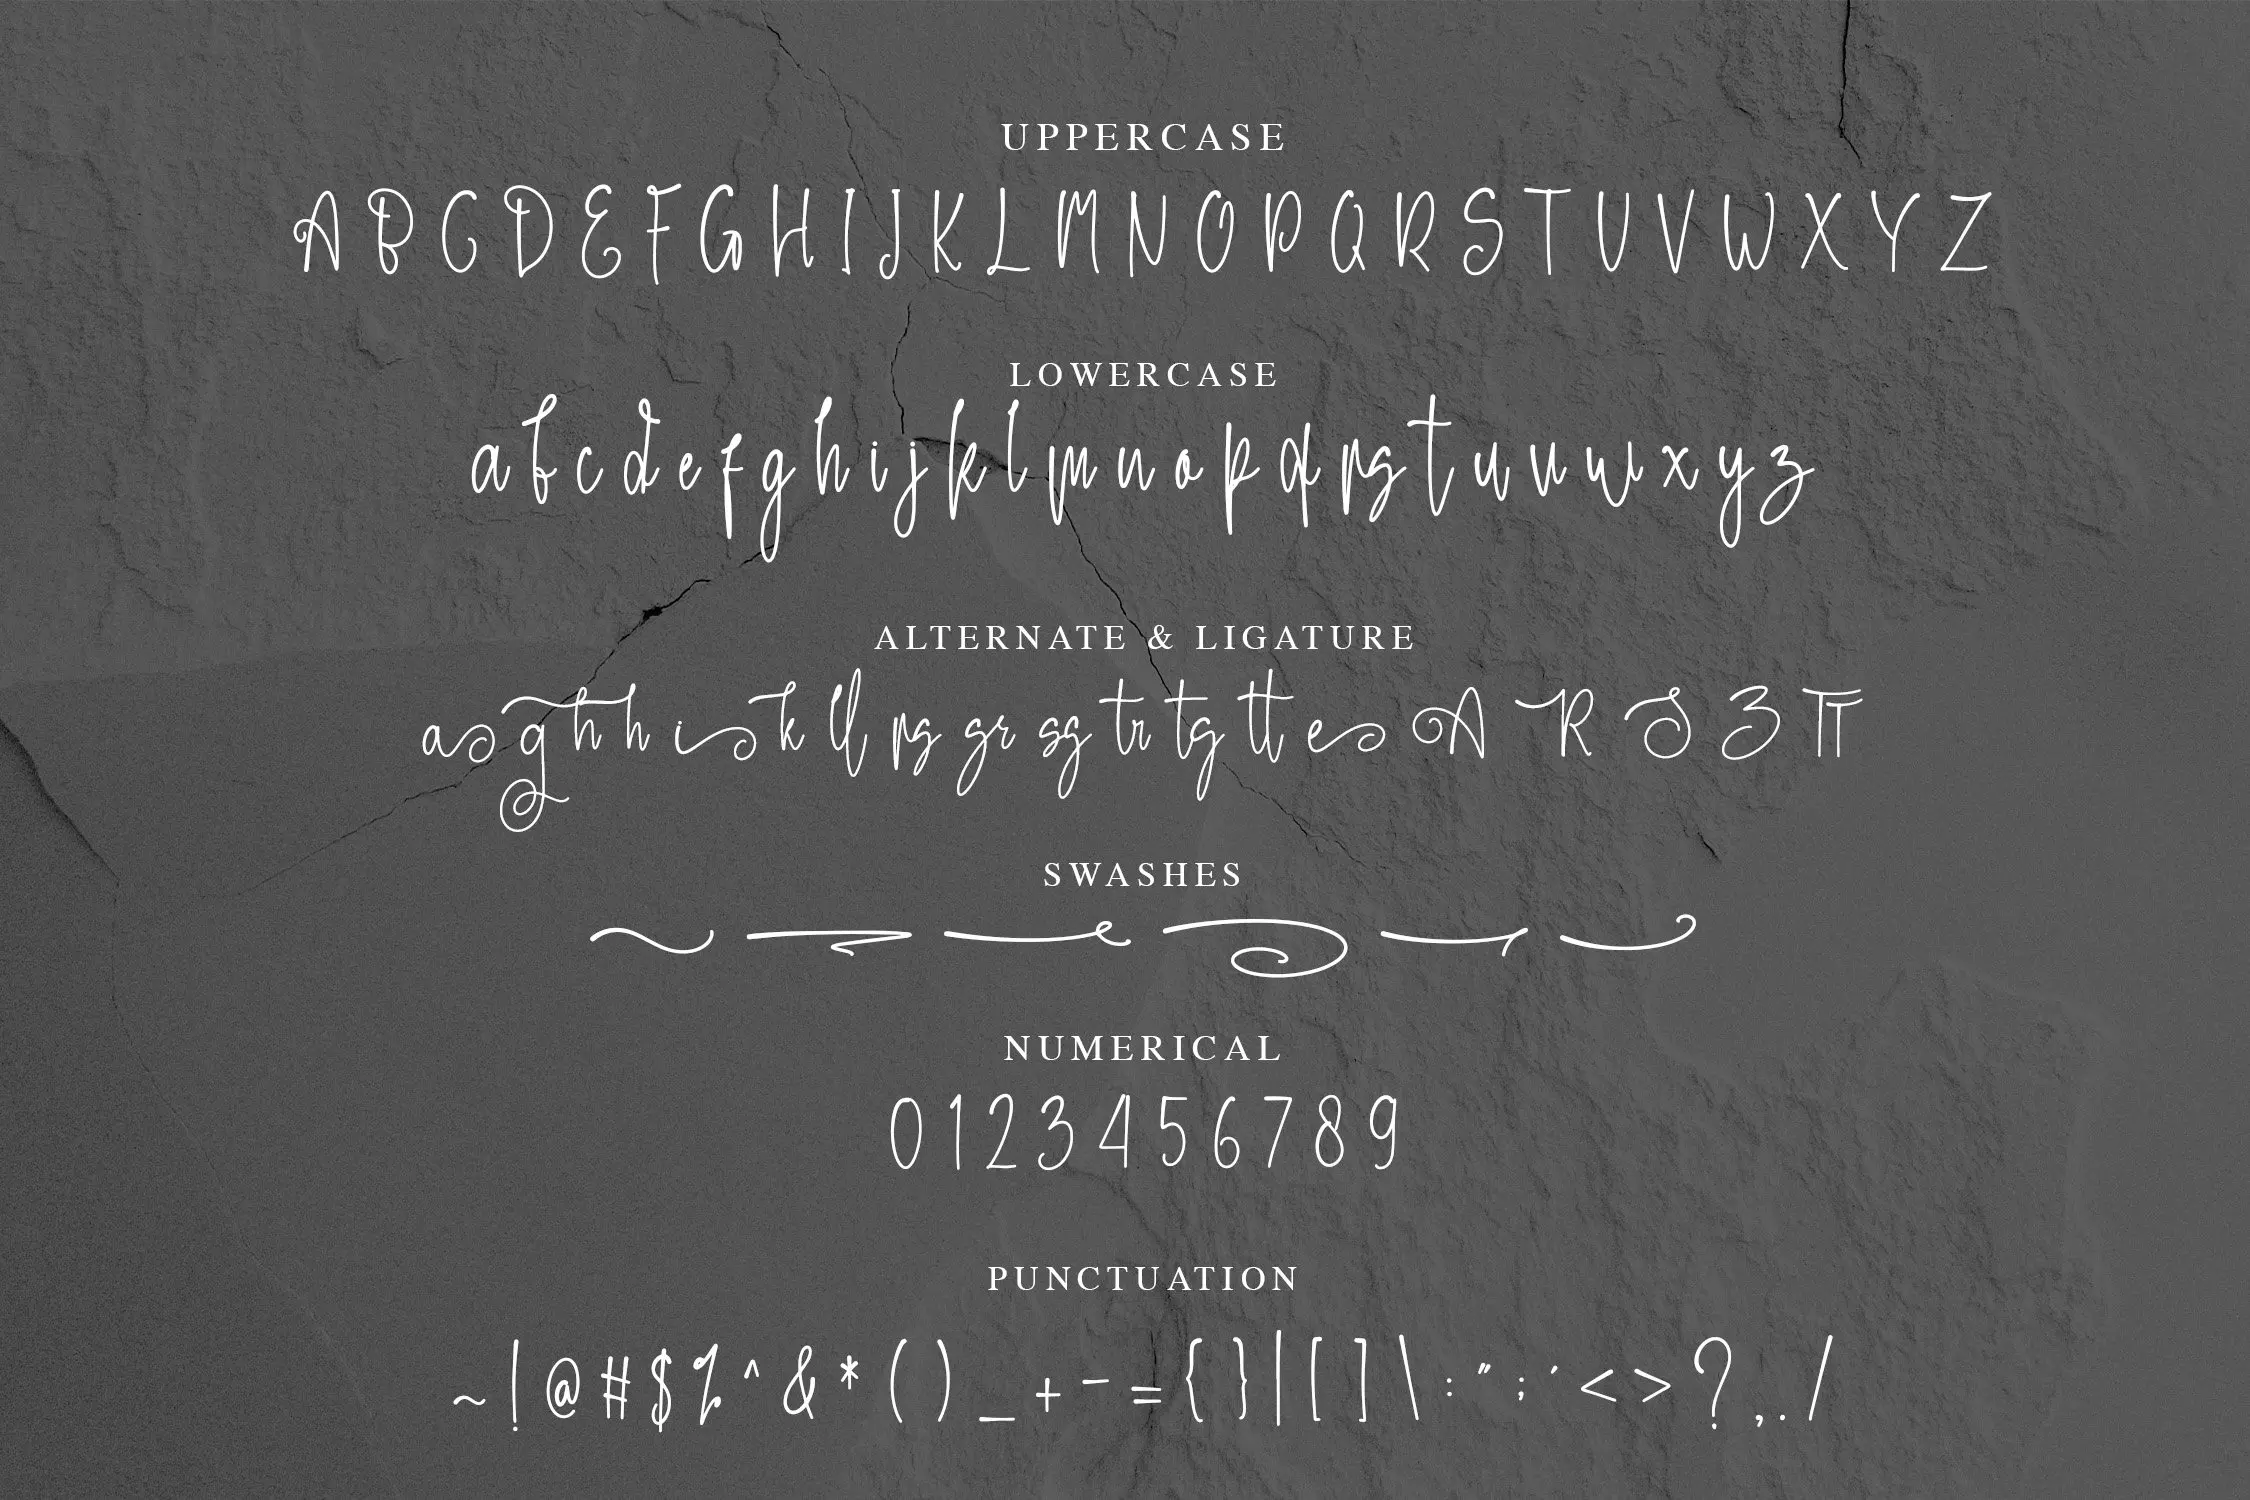 UPPERCASE
A B C D E F G H I J K L M N O P Q R S T U V W X Y Z
LOWERCASE
a b c d e f g h i j k l m n o p q r s t u v w x y z
ALTERNATE & LIGATURE
a g h h i k ll rs gr sg tr tg tt e A R S 3 TT
SWASHES
NUMERICAL
0 1 2 3 4 5 6 7 8 9
PUNCTUATION
~ ! @ # $ % ^ & * ( ) _ + - = { } | [ ] \ : " ; ' < > ? , . /